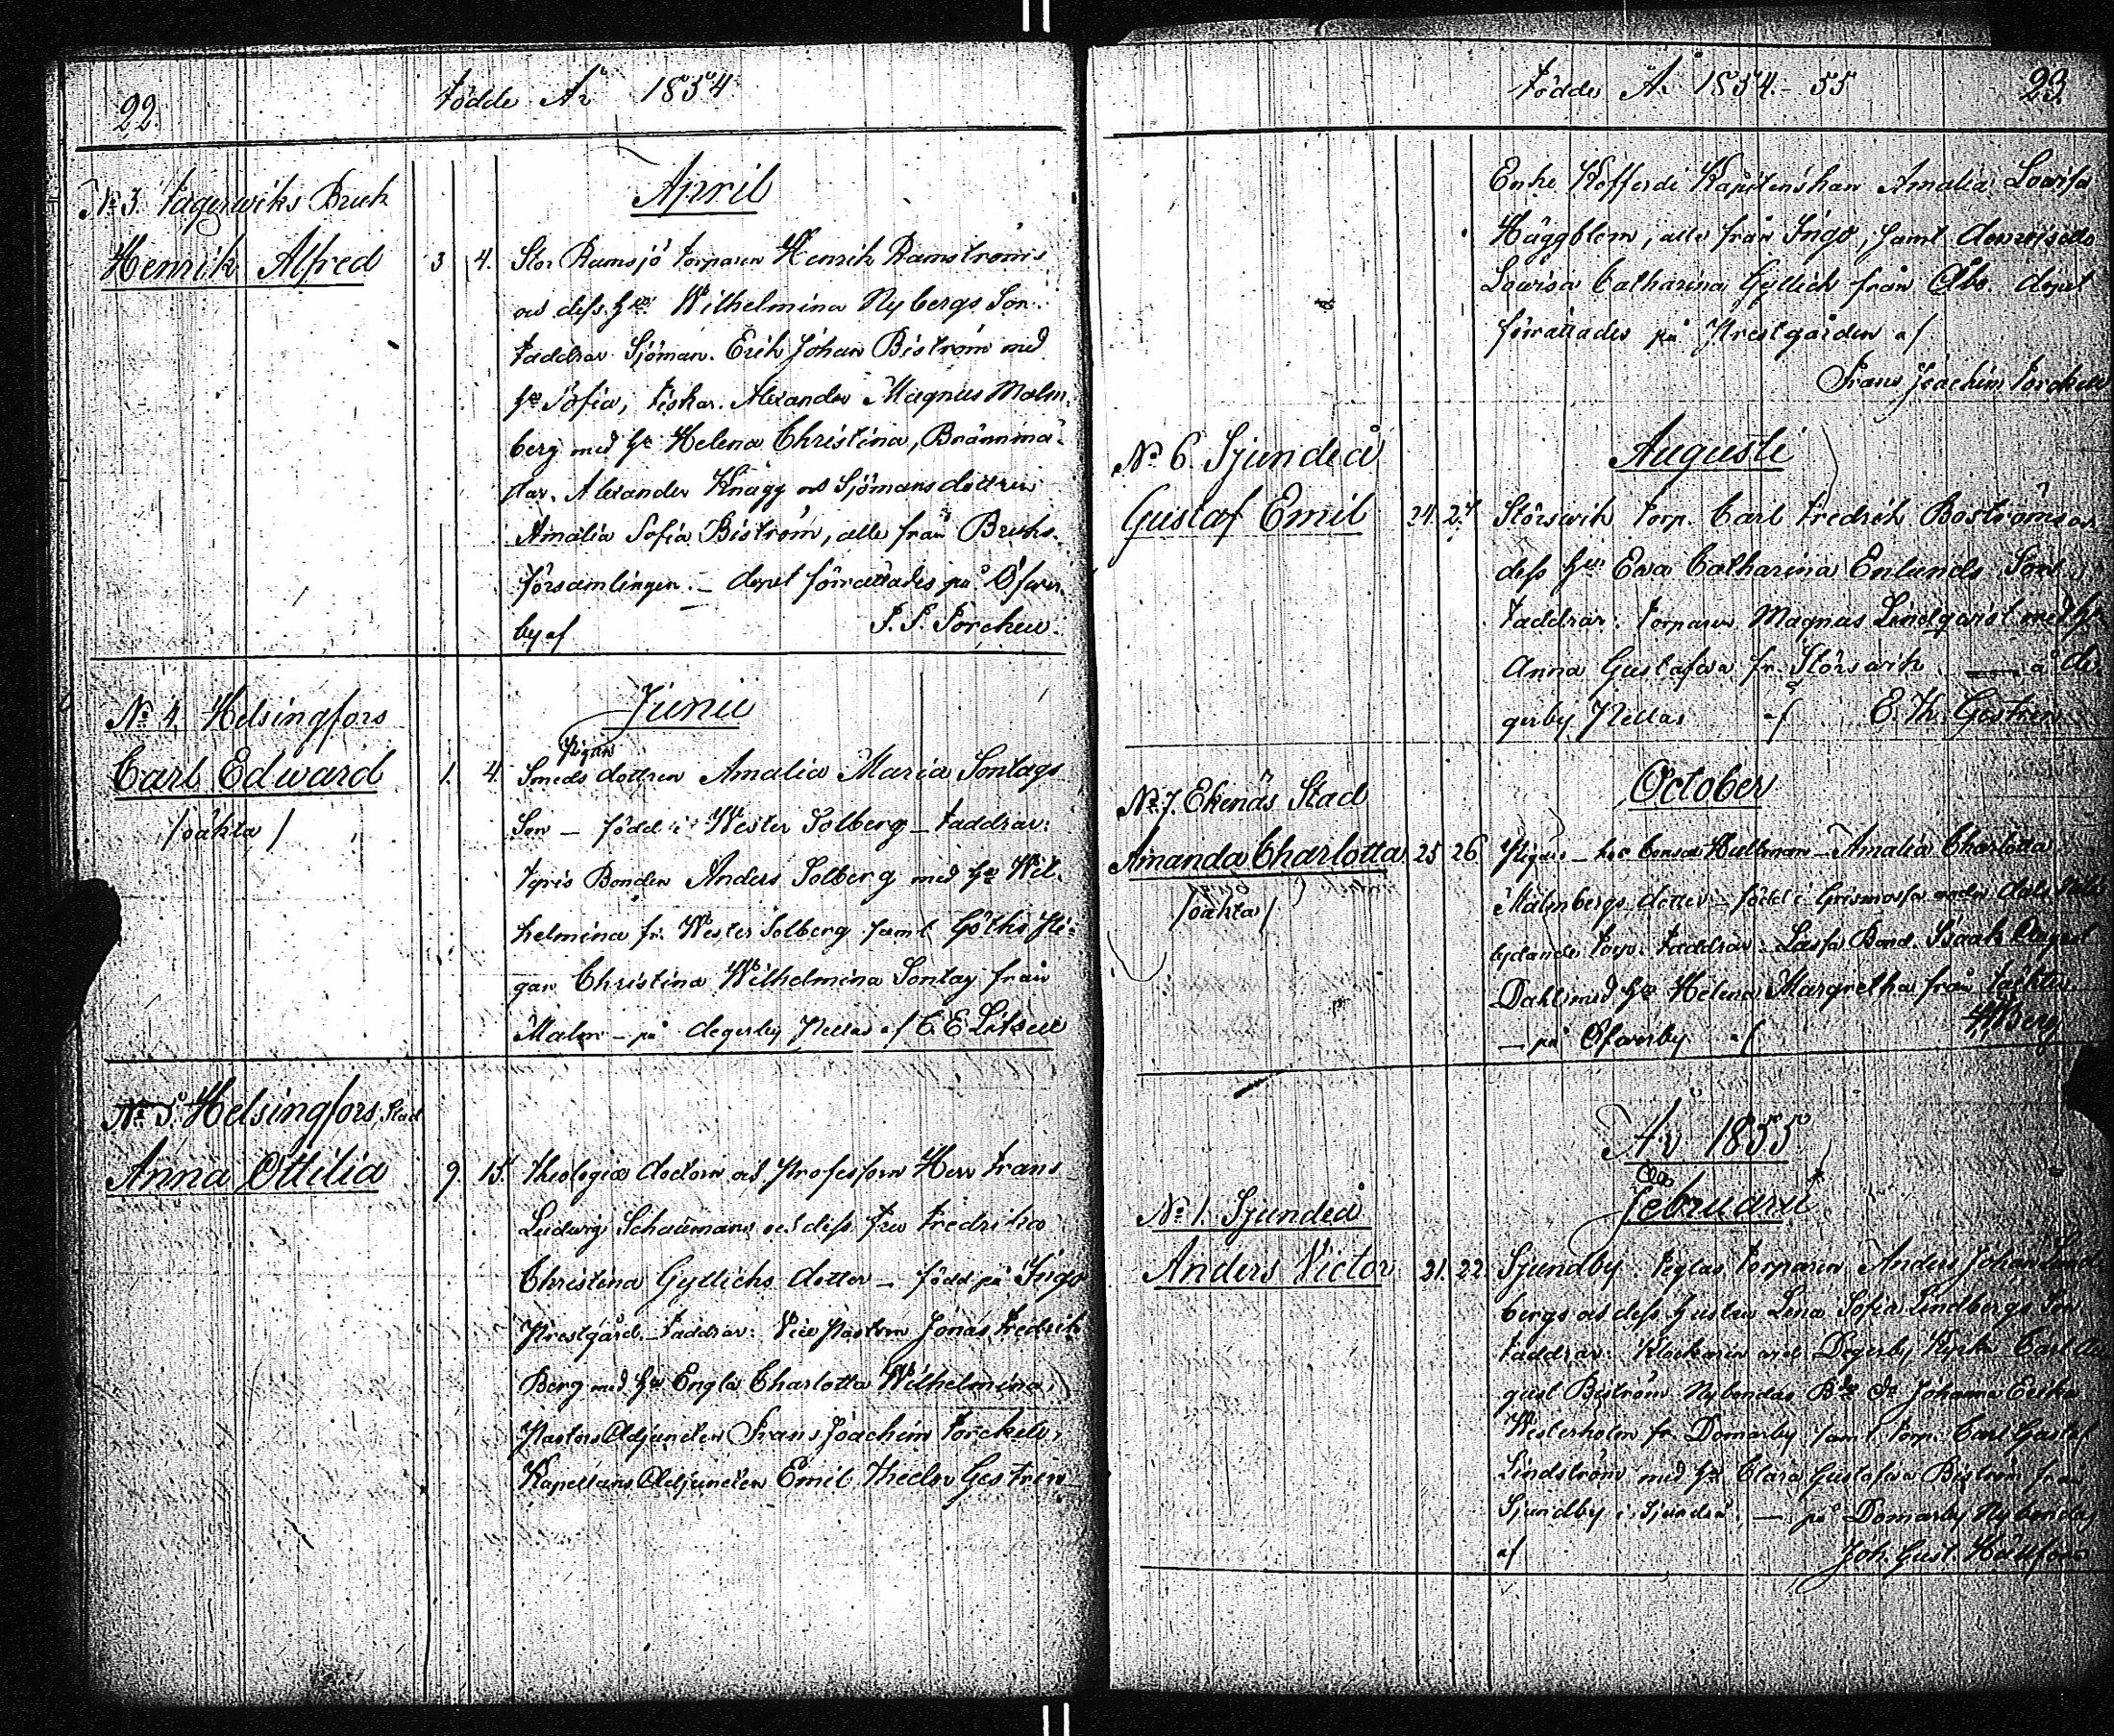 22.
Födde År 1854
April
No 3. Fagerwiks Bruk
Henrik Alfred 3 4. Stor Ramsjö torparen Henrik Ramströms
och dess h:u Wilhelmina Nybergs Son
Faddrar Sjöman. Erik Johan Biström med
h:u Sofia, Fiskar. Alexander Magnus Malm-
berg med h:u Helena Christina, Brännmä-
star. Alexander Knagg och Sjömansdottren
Amalia Sofia Biström, alla från Bruks-
församlingen. — dopet förrättades på Öfver-
by af F. J. Forckell.
Junii
No 4. Helsingfors
Pigan
Carl Edward 1. 4. Smeds dottren Amalia Maria Sontags
/oäkta/ Son — född i Wester Solberg — Faddrar:
Bonden Anders Solberg med h:u Wil-
helmina fr. Wester Solberg samt Göths Pi-
gan Christina Wilhelmina Sontag från
Malm — på degerby af C. E.
No 5. Helsingfors Stad
Anna Ottilia 9. 15. Theologiæ doctorn och Professorn Herr Frans
Ludwig Schaumans och dess Fru Fredrika
Christina Gyllichs dotter — född på Ingo
Prestgård. — Faddrar: Vice Pastorn Jonas Fredrik
Berg med h:u Engla Charlotta Wilhelmina,
Pastors Adjuncten Frans Joachim Forckell,
Kapellans Adjuncten Emil Theodor Gestrin
Födde År 1854 - 55
23.
Enke Kofferdi Kapitenskan Amalia Lovisa
Häggblom, alla från Ingo, samt demoiselle
Lovisa Catharina Gyllich från Åbo. dopet
förrättades på Prestgården af
Frans Joachim Forckell
Augusti
No 6. Sjundeå
Gustaf Emil 24. 27. Störsvik torp. Carl Fredrik Boströms och
dess h:u Eva Catharina Enlunds Son.
Faddrar: torparen Magnus Lindqvist med h:u
Anna Gustafva fr. Störsvik — å De-
gerby af E. Th. Gestrin
October
No 7. Ekenäs Stad
Amanda Charlotta 25 26 Pigan — hos Hultman — Amalia Charlotta
/oäkta/ Malmbergs dotter — född i
lydande torp. Faddrar: Bond. Isaak August
Dahl med h:u Helena Margretha från Täkter
— på Öfverby af Berg
År 1855
Februarii
No 1. Sjundeå
Anders Victor 21. 22. Sjundby torparen Anders Johan Lind-
bergs och dess hustru Lena Sofia Lindbergs Son
Faddrar: Klockaren vid Degerby Kyrka Carl Au-
gust Biström Nybondas Johanna
Westerholm fr. Domarby samt torp. Carl Gustaf
Lindström med h:u Clara Gustafva Biström från
Sjundby i Sjundeå. — på Domarby Nybondas
af Joh. Gust.